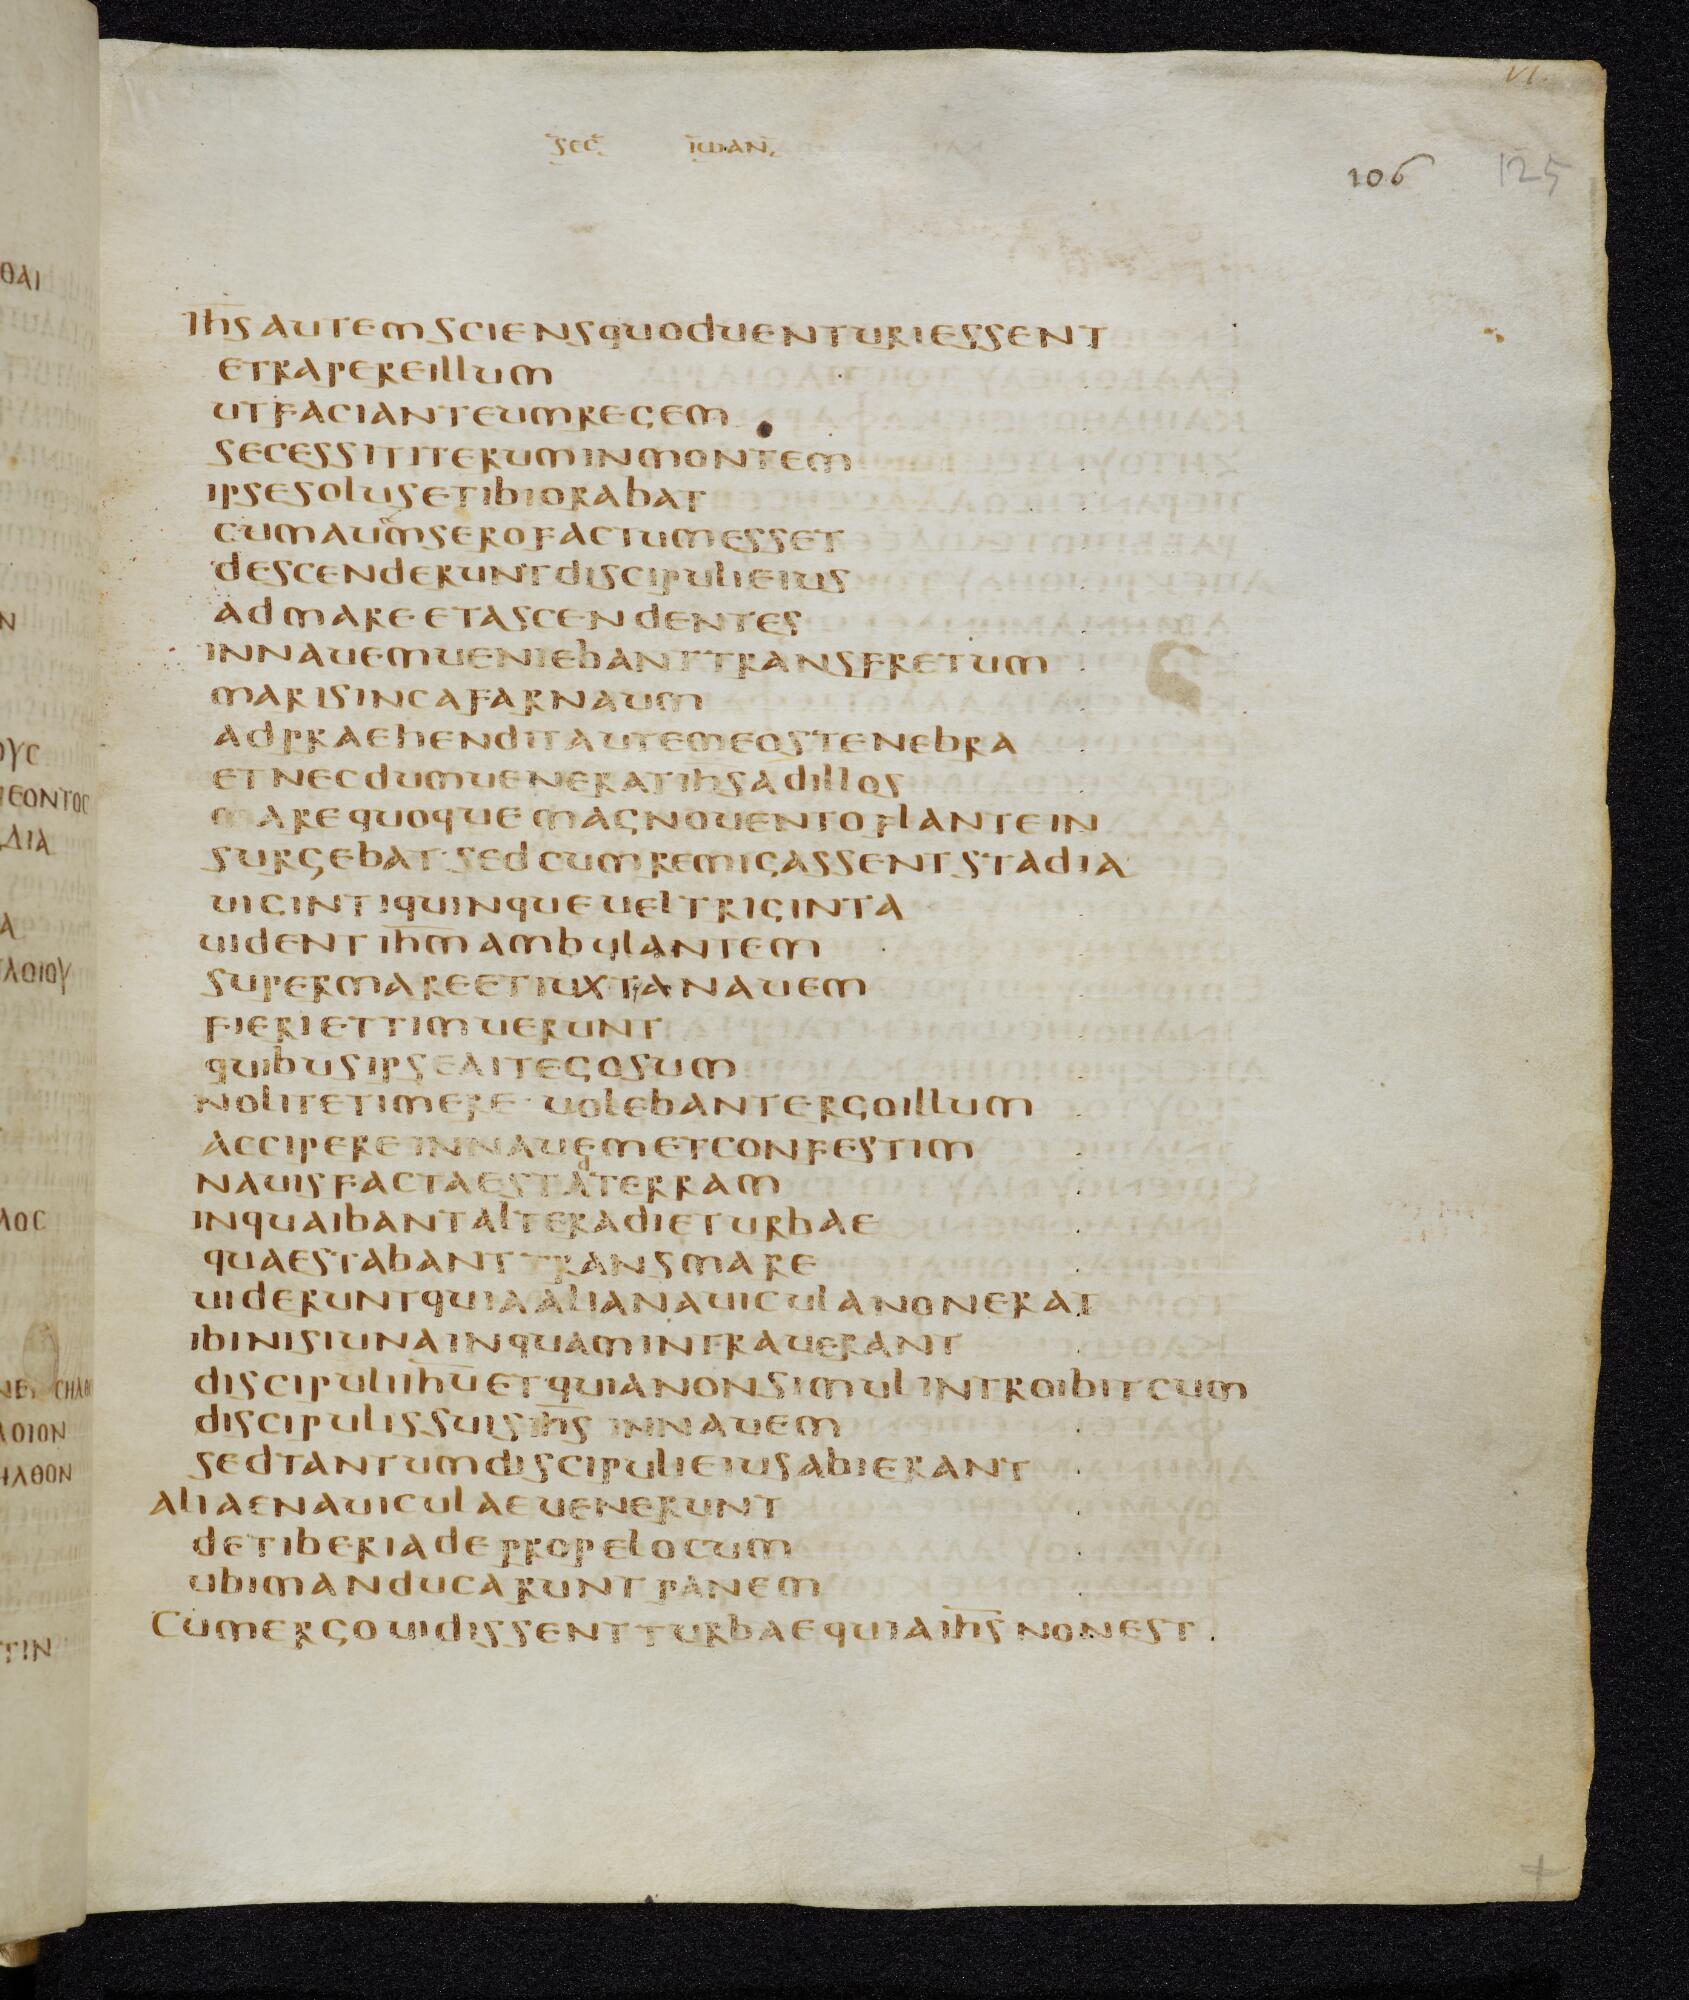 VI.
sec iωan.
106 125
ihs autem sciens quod uenturi essent
et rapere illum
ut faciant eum regem
secessit iterum in montem
ipse solus et ibi orabat
cum aum sero factum esset
descenderunt discipuli eius
ad mare et ascendentes
in nauem ueniebant trans fretum
maris in cafarnaum
adpraehendit autem eos tenebra
et necdum uenerat ihs ad illos
mare quoque magno uento flante in
surgebat · sed cum remigassent stadia
uiginti quinque uel triginta
uident ihm ambulantem
super mare et iuxta nauem
fieri et timuerunt
quibus ipse ait ego sum
nolite timere · uolebant ergo illum
accipere in nauem et confestim
nauis facta est ad terram
in qua ibant altera die turbae
quae stabant trans mare
uiderunt quia alia nauicula non erat
ibi nisi una in quam intrauerant
discipuli ihu et quia non simul introibit cum
discipulis suis ihs in nauem
sed tantum discipuli eius abierant
aliae nauiculae uenerunt
de tiberiade prope locum
ubi manducarunt panem
Cum ergo uidissent turbae quia ihs non est
ΘΑΙ
Ν
ΟΥС
ΔΙΑ
Α
ΛΟΙΟΥ
ΛΟС
ΛΟΙΟΝ
ΗΛΘΟΝ
ΤΙΝ